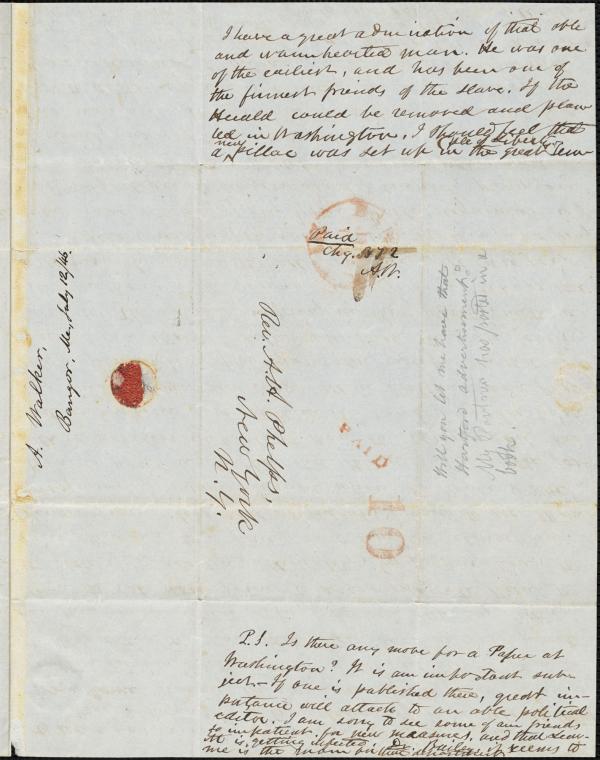 I have a great admiration of that able
and warmhearted man. He was one
of the earliest, and has been one of
the firmest friends of the slave. If the
Herald could be removed and plan
ted in Washington, I should feel that
a new pillar was set up in the great Tem-
ple of Liberty.
Paid
Chg. 3172
A.W.
A. Walker,
Bangor, Me, July 12/46.
Rev. A. A. Phelps,
New York
N.Y.
PAID
10
Will you let me have that
Hartford advertisement?
My Partner has pasted in a
book.
P.S. Is there any move for a Paper at
Washington? It is an important sub-
ject— If one is published there, great im-
portance will attach to an able political
editor. I am sorry to see some of our friends
so impatient for new measures, and that Leav-
itt is getting infected. Dr. Bailey it seems to
me is the man on that department